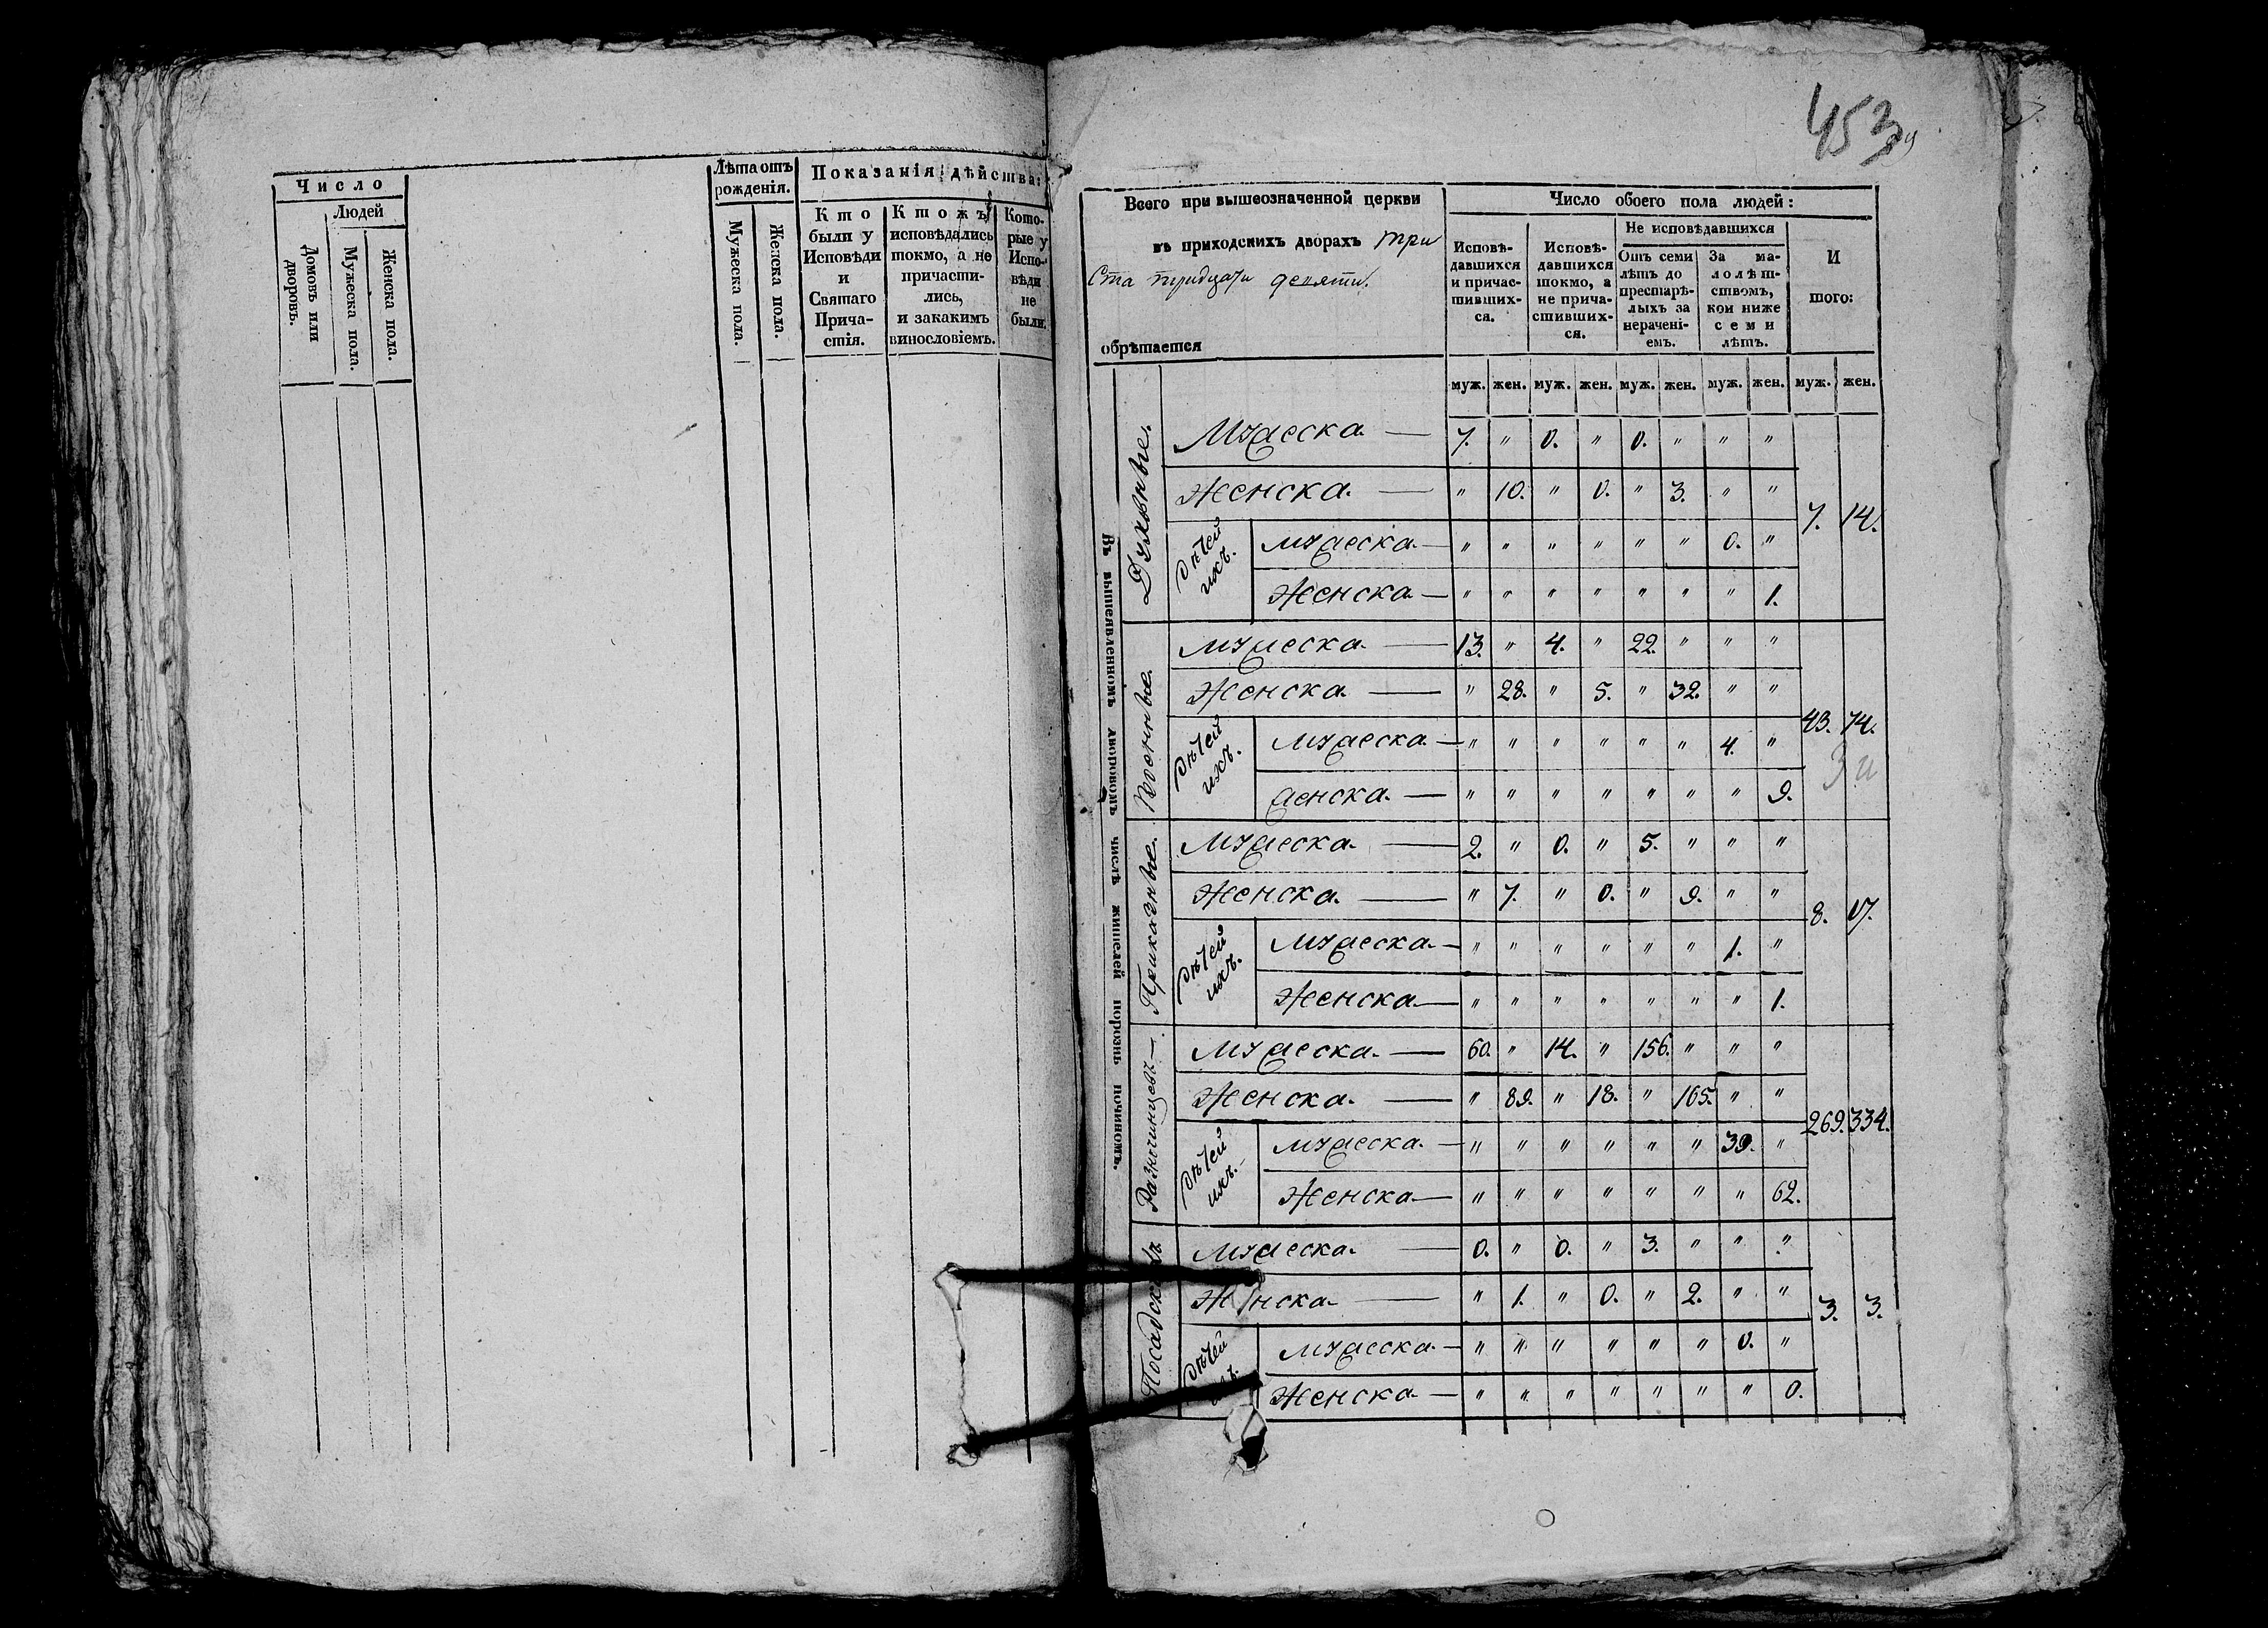 Число
Людей
Домовъ или дворовъ.
Мужеска пола
Женска пола.
Лѣта отъ рожденія.
Мужеска пола.
Женска пола.
Показанія дѣйства:
Кто
были у
Исповѣди
и
Святаго
Прича-
стія.
Кто жъ
исповѣдались
токмо, а не
причасти-
лись,
и закакимъ
винословіемъ.
Кото-
рые у
Испо-
вѣди
не
были.
453
Всего при вышеозначенной церкви
въ приходскихъ дворахъ три
ста тридцати девяти.
обрѣтается
Число обоего пола людей:
Исповѣ-
давшихся
и причас-
тивших-
ся.
Исповѣ-
давшихся
токмо, а
не прича-
стивших-
ся.
Не исповѣдавшихся
Отъ семи
лѣтъ до
престарѣ-
лыхъ за
нерачені-
емъ.
За ма-
лолѣт-
ствомъ,
кои ниже
семи
лѣтъ.
И
того:
муж. жен. муж. жен. муж. жен. муж. жен. муж. жен.
Въ вышеявленномъ дворовомъ числѣ жителей порознь починомъ.
Духовные.
Мужеска. — 7. " 0. " 0. " " "
Женска. — " 10. " 0. " 3. " "
7. 14.
Дѣтей ихъ.
Мужеска — " " " " " " 0. "
Женска — " " " " " " " 1.
Военные.
Мужеска. — 13. " 4. " 22. " " "
Женска — " 28. " 5. " 32. " "
43. 74.
Дѣтей ихъ.
Мужеска — " " " " " " 4. "
женска. — " " " " " " " 9.
Приказные.
Мужеска. — 2. " 0. " 5. " " "
Женска. — " 7. " 0. " 9. " "
8. 17.
Дѣтей ихъ.
Мужеска. — " " " " " " 1. "
Женска — " " " " " " " 1.
Разночинцевъ —
Мужеска. — 60. " 14. " 156. " " "
Женска. — " 89. " 18. " 165. " "
269. 334.
Дѣтей ихъ.
Мужеска. — " " " " " " 39. "
Женска — " " " " " " " 62.
Мужеска. — 0. " 0. " 3. " " "
Женска — " 1. " 0. " 2. " "
3. 3.
Дѣтей
Мужеска. — " " " " " " 0. "
Женска — " " " " " " " 0.